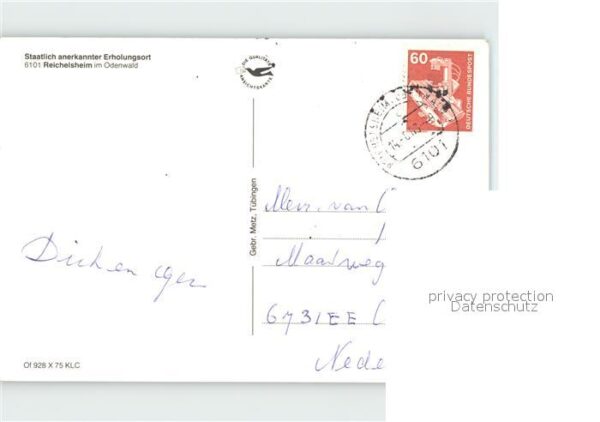 Staatlich anerkannter Erholungsort
6101 Reichelsheim im Odenwald
DIE QUALITÄTS
ANSICHTSKARTE
60
DEUTSCHE BUNDESPOST
6101
Gebr. Metz, Tübingen
Mevr. van
Maarweg
6731EE
Nede
privacy protection
Datenschutz
Of 928 X 75 KLC